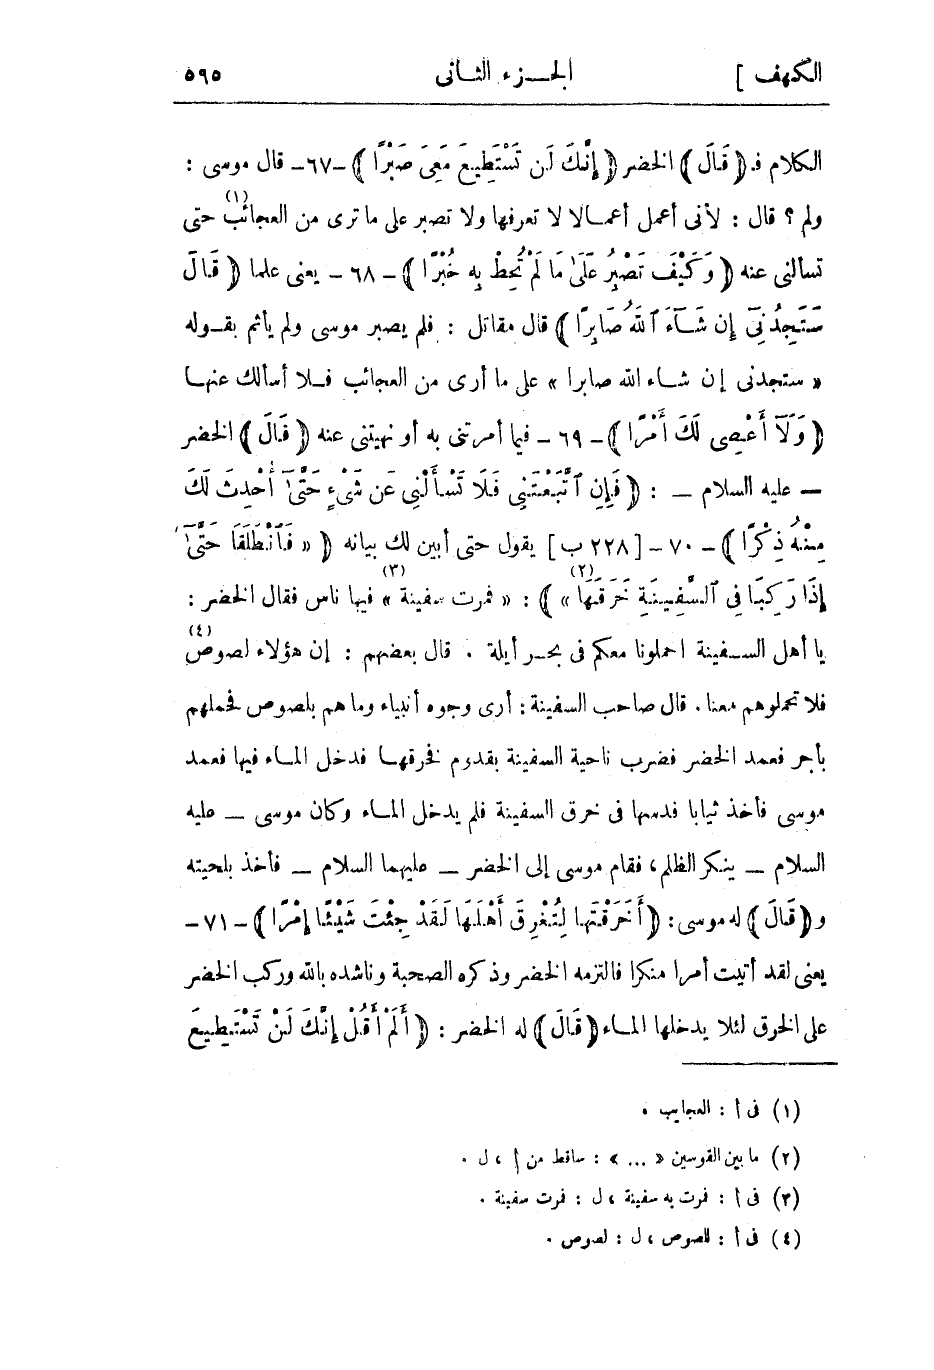 الكهف ] الجـزء الثانى ٥٩٥
الكلام فـ ﴿ قَالَ ﴾ الخضر ﴿ إِنَّكَ لَن تَسْتَطِيعَ مَعِىَ صَبْرًا ﴾ ـ٦٧ـ قال موسى :
ولم ؟ قال : لأنى أعمل أعمـالا لا تعرفها ولا تصبر على ما ترى من العجائب (١) حتى
تسالنى عنه ﴿ وَكَيْفَ تَصْبِرُ عَلَىٰ مَا لَمْ تُحِطْ بِهِ خُبْرًا ﴾ ـ ٦٨ ـ يعنى علما ﴿ قَالَ
سَتَجِدُنِىٓ إِن شَآءَ ٱللَّهُ صَابِرًا ﴾ قال مقاتل : فلم يصبر موسى ولم يأثم بقـوله
« ستجدنى إن شـاء الله صابرا » على ما أرى من العجائب فـلا أسألك عنهـا
﴿ وَلَآ أَعْصِى لَكَ أَمْرًا ﴾ ـ ٦٩ ـ فيما أمرتنى به أو نهيتنى عنه ﴿ قَالَ ﴾ الخضر
ـ عليه السلام ـ : ﴿ فَإِنِ ٱتَّبَعْتَنِى فَلَا تَسْأَلْنِى عَن شَىْءٍ حَتَّىٰٓ أُحْدِثَ لَكَ
مِنْهُ ذِكْرًا ﴾ ـ ٧٠ ـ [ ٢٢٨ ب ] يقول حتى أبين لك بيانه ﴿ « فَٱنْطَلَقَا حَتَّىٰٓ
إِذَا رَكِبَا فِى ٱلسَّفِينَةِ خَرَقَهَا » (٢) ﴾ : « فمرت سفينة » (٣) فيها ناس فقال الخضر :
يا أهل السـفينة احملونا معكم فى بحـر أيلة . قال بعضهم : إن هؤلاء لصوص (٤)
فلا تحملوهم معنا . قال صاحب السفينة : أرى وجوه أنبياء وما هم بلصوص فحملهم
بأجر فعمد الخضر فضرب ناحية السفينة بقدوم فخرقهـا فدخل المـاء فيها فعمد
موسى فأخذ ثيابا فدسها فى خرق السفينة فلم يدخل المـاء وكان موسى ـ عليه
السلام ـ ينكر الظلم ، فقام موسى إلى الخضر ـ عليهما السلام ـ فأخذ بلحيته
و ﴿ قَالَ ﴾ له موسى : ﴿ أَخَرَقْتَهَا لِتُغْرِقَ أَهْلَهَا لَقَدْ جِئْتَ شَيْئًا إِمْرًا ﴾ ـ ٧١ ـ
يعنى لقد أتيت أمرا منكرا فالتزمه الخضر وذكره الصحبة وناشده بالله وركب الخضر
على الخرق لئلا يدخلها المـاء ﴿ قَالَ ﴾ له الخضر : ﴿ أَلَمْ أَقُلْ إِنَّكَ لَنْ تَسْتَطِيعَ
(١) فى أ : العجايب .
(٢) ما بين القوسين « ... » : ساقط من أ ، ل .
(٣) فى أ : فمرت به سفينة ، ل : فمرت سفينة .
(٤) فى أ : للصوص ، ل : لصوص .